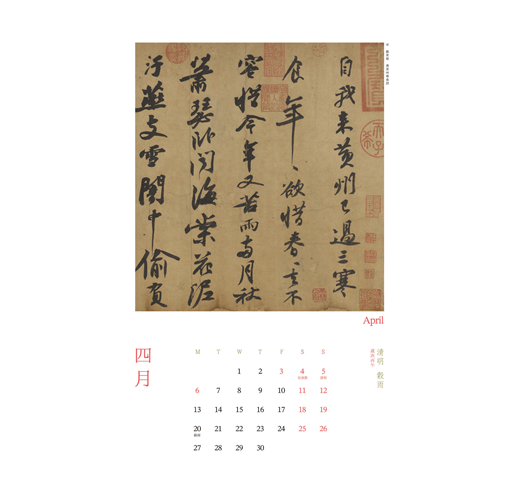 自我来黃州已過三寒
食年〻欲惜春〻去不
容惜今年又苦雨兩月秋
蕭瑟卧聞海棠花泥
汙燕支雪闇中偷負
April
四月
清明 穀雨
歲次丙午
M T W T F S S
1 2 3 4 5
兒童節 清明
6 7 8 9 10 11 12
13 14 15 16 17 18 19
20 21 22 23 24 25 26
穀雨
27 28 29 30